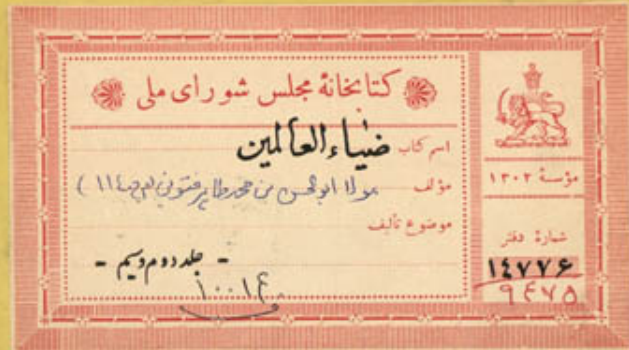 کتابخانهٔ مجلس شورای ملی
اسم کتاب ضیاء العالمین
مؤلف مولا ابوالحسن بن محمد طاهر فتونی
موضوع تألیف
- جلد دوم وسیم -
۱۰۰۱۴
مؤسسهٔ ۱۳۰۲
شمارهٔ دفتر
۱٤۷۷۶
۹۴۷۵